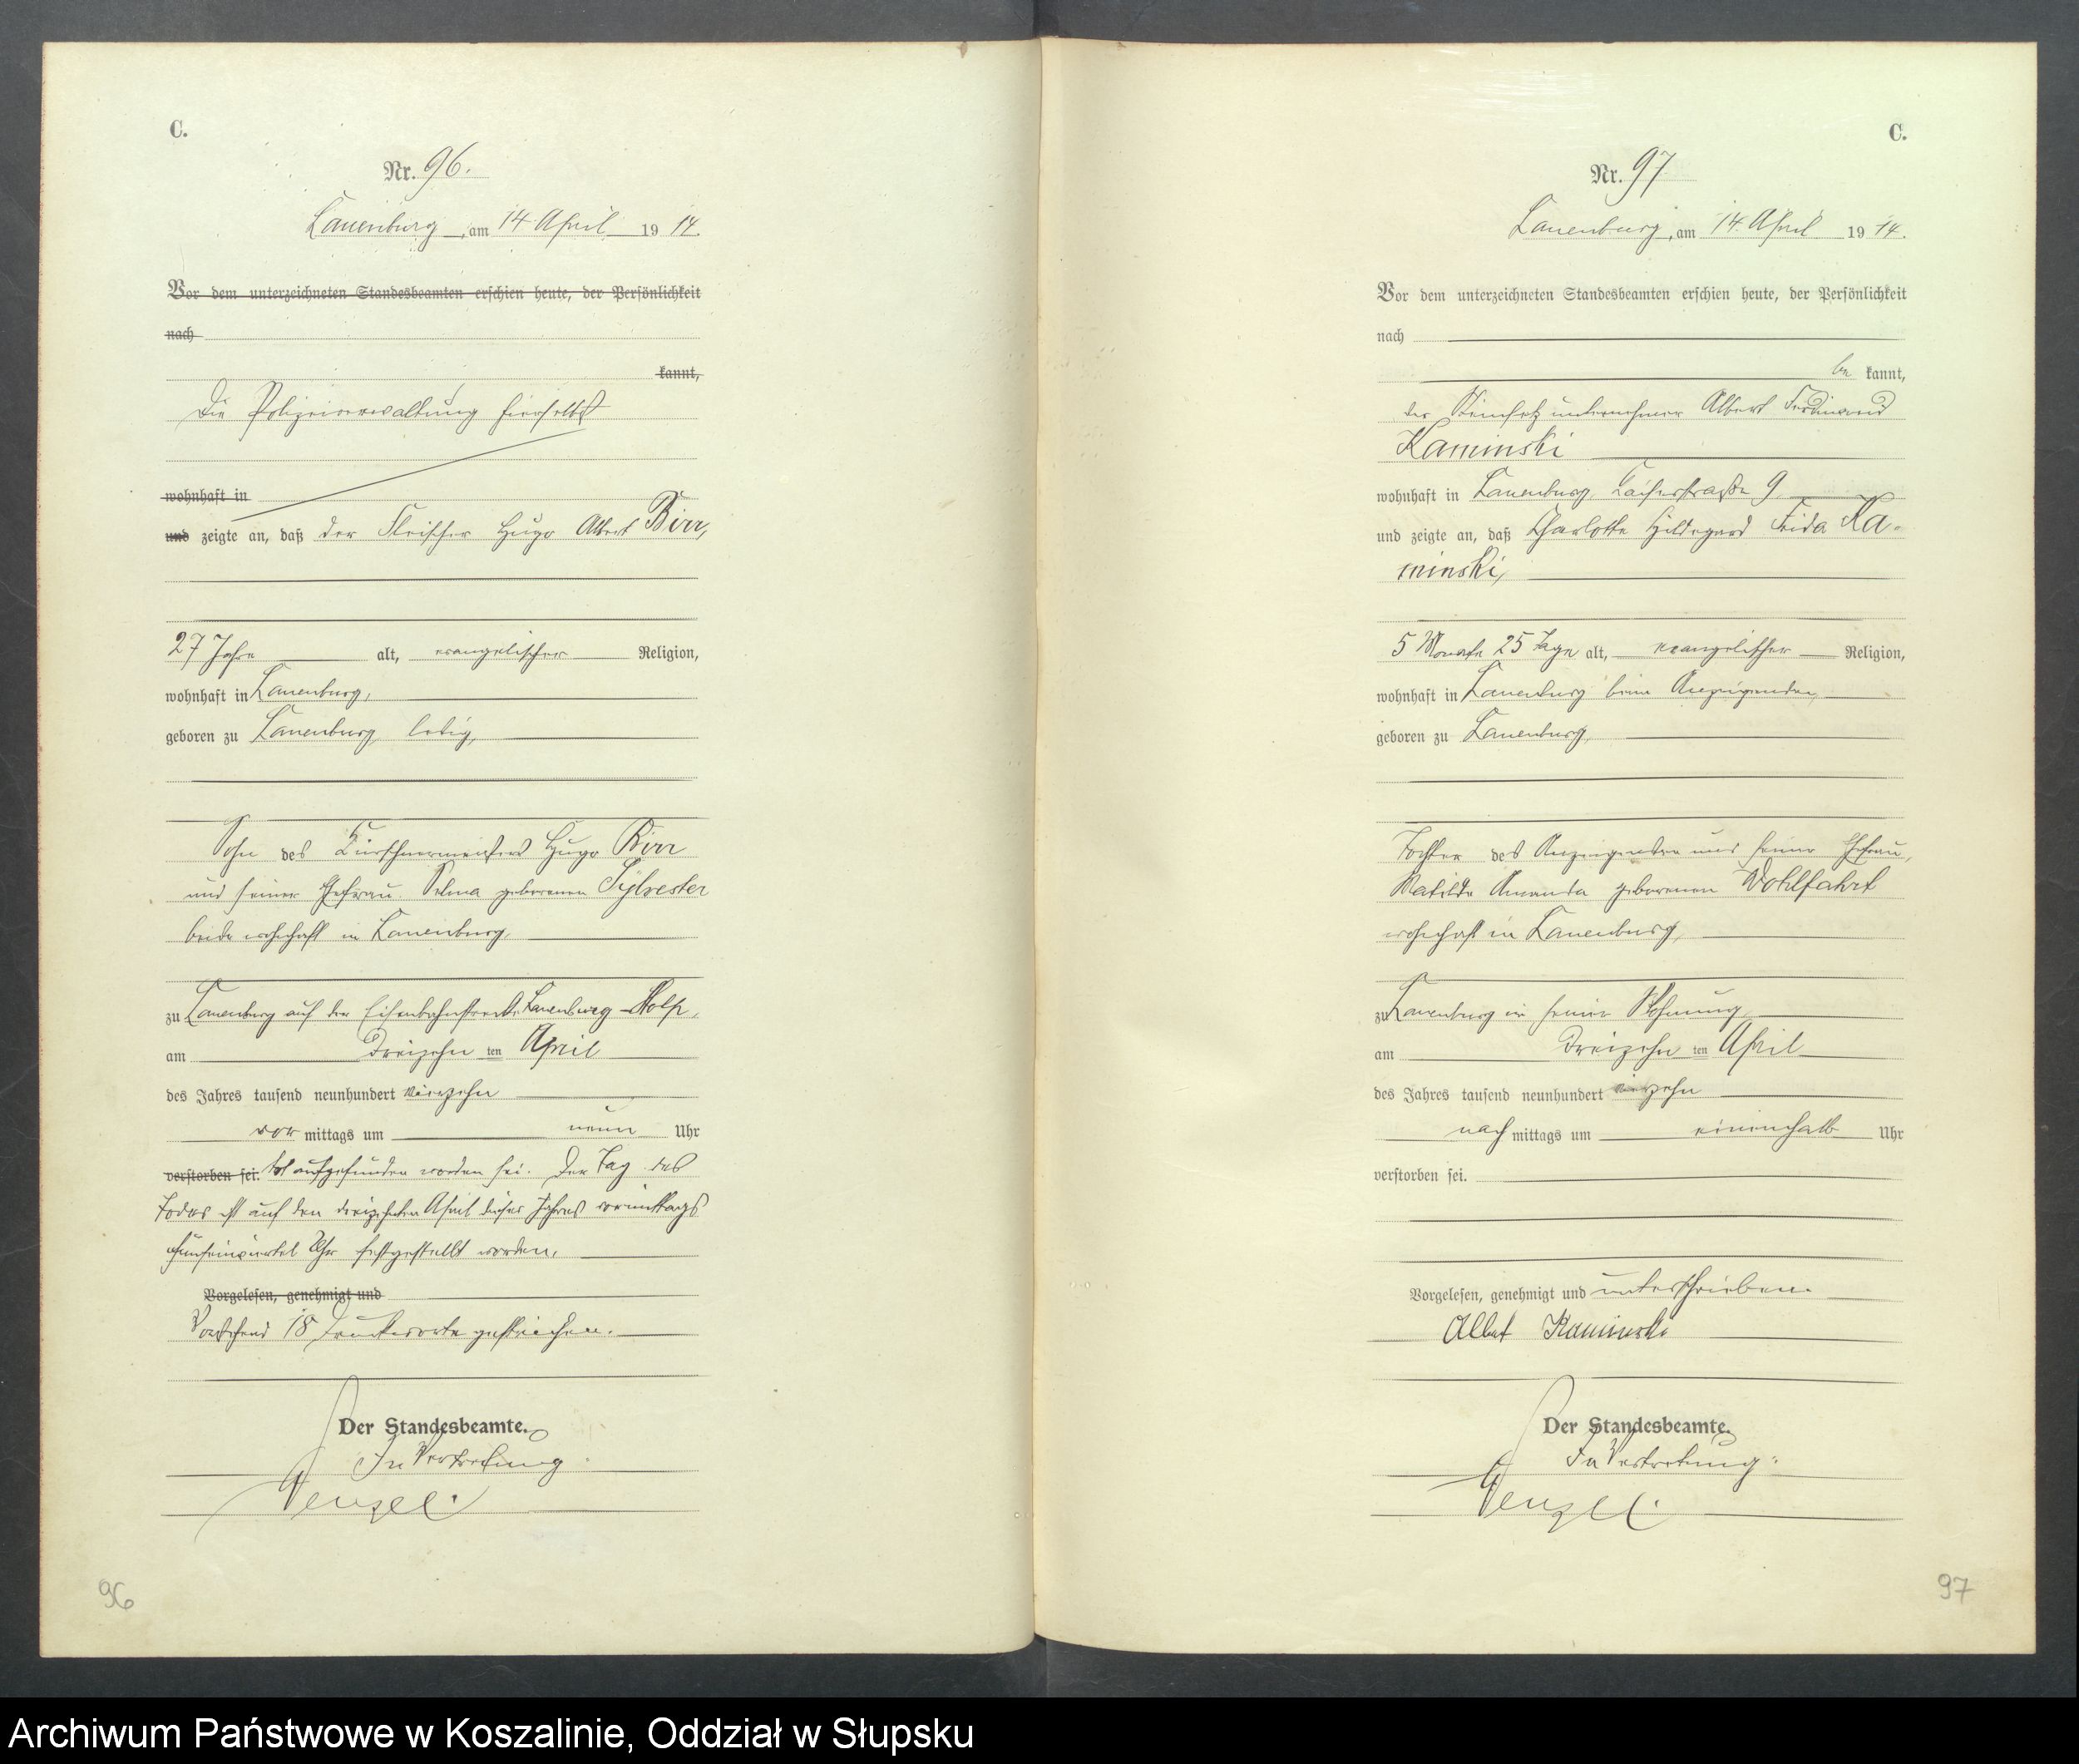 C.
Nr. 96.
Lauenburg, am 14 April 1914.
Vor dem unterzeichneten Standesbeamten erschien heute, der Persönlichkeit
nach
kannt,
Die Polizeiverwaltung hierselbst
wohnhaft in
und zeigte an, daß der Fleischer Hugo Albert Birr,
27 Jahre alt, evangelischer Religion,
wohnhaft in Lauenburg,
geboren zu Lauenburg, ledig,
Sohn des Kürschnermeisters Hugo Birr
und seiner Ehefrau Selma geborenen Sylvester
beide wohnhaft in Lauenburg,
zu Lauenburg auf der Eisenbahnstrecke Lauenburg-Stolp,
am Dreizehn ten April
des Jahres tausend neunhundert vierzehn
vor mittags um neun Uhr
verstorben sei. tot aufgefunden worden sei. Der Tag des
Todes ist auf den dreizehnten April dieses Jahres vormittags
Uhr festgestellt worden.
Vorgelesen, genehmigt und
Vorstehend 18 Druckworte gestrichen.
Der Standesbeamte.
In Vertretung
Wenzel.
96
C.
Nr. 97
Lauenburg, am 14. April 1914.
Vor dem unterzeichneten Standesbeamten erschien heute, der Persönlichkeit
nach
be kannt,
der Steinsetzunternehmer Albert Ferdinand
Kaminski
wohnhaft in Lauenburg, straße 9
und zeigte an, daß Charlotte Hildegard Frida Ka-
minski,
5 Monate 25 Tage alt, evangelischer Religion,
wohnhaft in Lauenburg beim Anzeigenden,
geboren zu Lauenburg,
Tochter des Anzeigenden und seiner Ehefrau,
Matilde Amanda geborenen Wohlfahrt
wohnhaft in Lauenburg,
zu Lauenburg in seiner Wohnung,
am Dreizehn ten April
des Jahres tausend neunhundert vierzehn
nach mittags um eineinhalb Uhr
verstorben sei.
Vorgelesen, genehmigt und unterschrieben.
Albert Kaminski
Der Standesbeamte.
In Vertretung:
Wenzel.
97
Archiwum Państwowe w Koszalinie, Oddział w Słupsku